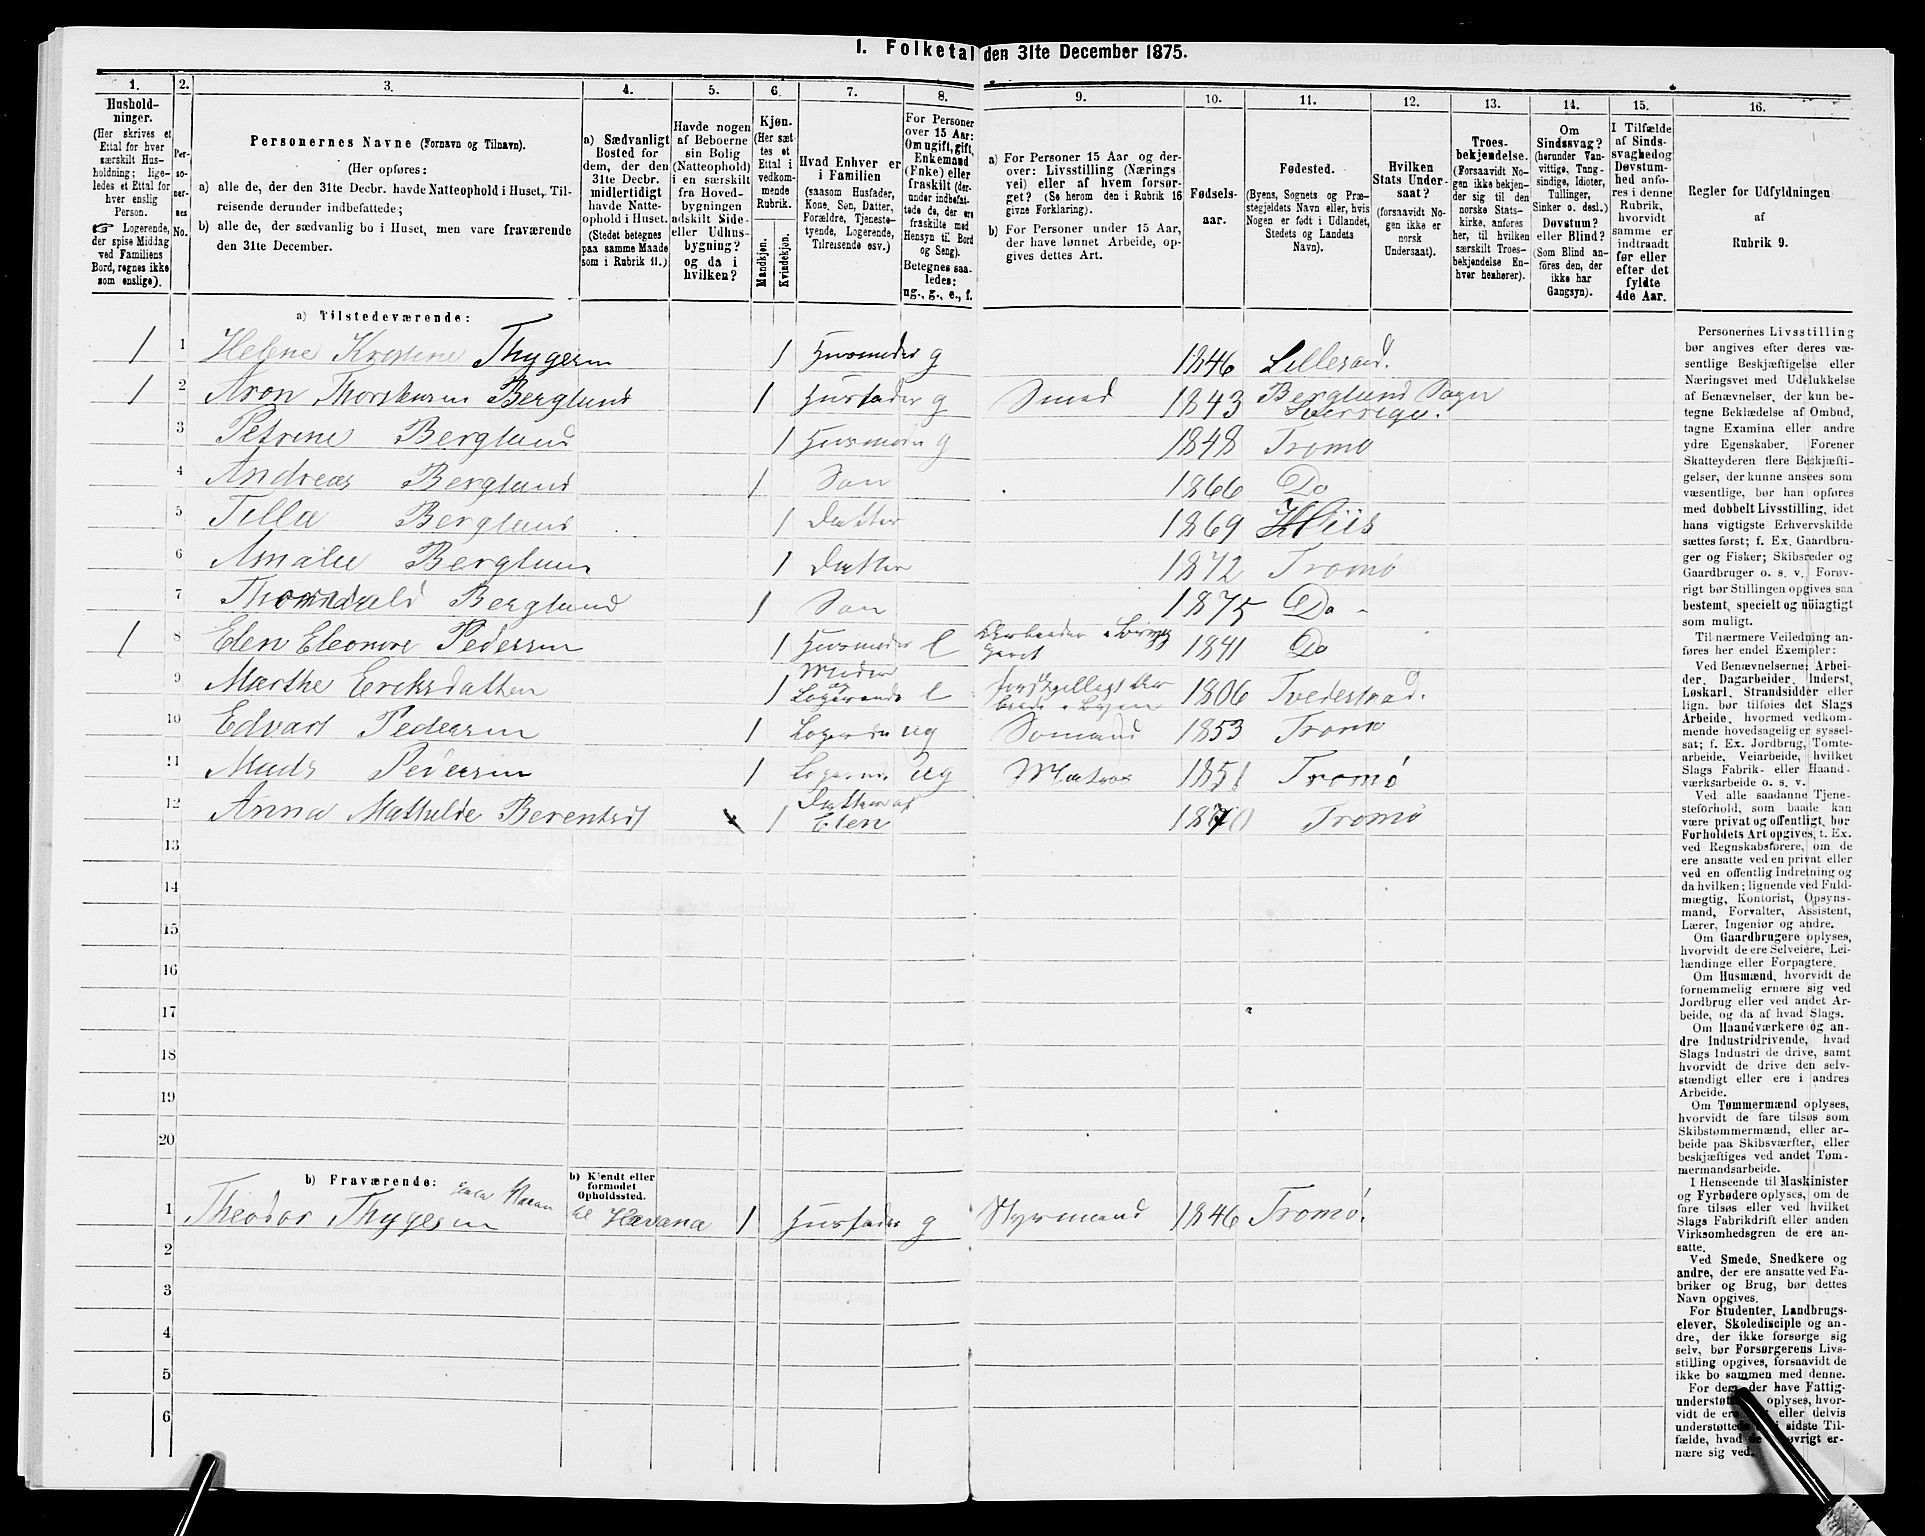 1. Folketal den 31te December 1875.
1.
2.
3.
4.
5.
6.
7.
8.
9.
10.
11.
12.
13.
14.
15.
16.
Hushold-
ninger.
(Her skrives et
Ettal for hver
særskilt Hus-
holdning; lige-
ledes et Ettal for
hver enslig
Person.
☞ Logerende,
der spise Middag
ved Familiens
Bord, regnes ikke
som enslige).
Per-
so-
ner-
nes
No.
Personernes Navne (Fornavn og Tilnavn).
(Her opføres:
a) alle de, der den 31te Decbr. havde Natteophold i Huset, Til-
reisende derunder indbefattede;
b) alle de, der sædvanlig bo i Huset, men vare fraværende
den 31te December.
a) Sædvanligt
Bosted for
dem, der den
31te Decbr.
midlertidigt
havde Natte-
ophold i Huset.
(Stedet betegnes
paa samme Maade
som i Rubrik 11.)
Havde nogen
af Beboerne
sin Bolig
(Natteophold)
i en særskilt
fra Hoved-
bygningen
adskilt Side-
eller Udhus-
bygning?
og da i
hvilken?
Kjøn.
(Her sæt-
tes et
Ettal i
vedkom-
mende
Rubrik.
Mandkjøn.
Kvindekjøn.
Hvad Enhver er
i Familien
(saasom Husfader,
Kone, Søn, Datter,
Forældre, Tjeneste-
tyende, Logerende,
Tilreisende osv.)
For Personer
over 15 Aar:
Om ugift, gift,
Enkemand
(Enke) eller
fraskilt (der-
under indbefat-
tede de, der ere
fraskilte med
Hensyn til Bord
og Seng).
Betegnes saa-
ledes:
ug., g., e., f.
a) For Personer 15 Aar og der-
over: Livsstilling (Nærings
vei) eller af hvem forsør-
get? (Se herom den i Rubrik 16
givne Forklaring).
b) For Personer under 15 Aar,
der have lønnet Arbeide, op-
gives dettes Art.
Fødsels-
aar.
Fødested.
(Byens, Sognets og Præ-
stegjeldets Navn eller, hvis
Nogen er født i Udlandet,
Stedets og Landets
Navn).
Hvilken
Stats Under-
saat?
(forsaavidt No-
gen ikke er
norsk
Undersaat).
Troes-
bekjendelse.
(Forsaavidt No-
gen ikke bekjen-
der sig til den
norske Stats-
kirke, anføres
her, til hvilken
særskilt Troes-
bekjendelse En-
hver henhører).
Om
Sindssvag?
(herunder Van-
vittige, Tung-
sindige, Idioter,
Tullinger,
Sinker o. desl.)
Døvstum?
eller Blind?
(Som Blind an-
føres den, der
ikke har
Gangsyn).
I Tilfælde
af Sinds-
svaghed og
Døvstum-
hed anfø-
res i denne
Rubrik,
hvorvidt
samme er
indtraadt
før eller
efter det
fyldte
4de Aar.
Regler for Udfyldningen
af
Rubrik 9.
a) Tilstedeværende:
1 1 Helene Kristine Thygesen 1 Husmoder g 1846 Lillesand.
1 2 Aron Thorkursen Berglund 1 Husfader g Smed 1843 Berglund Sogn
Sverrige.
3 Petrine Berglund 1 Husmoder g 1848 Tromø
4 Andreas Berglund 1 Søn 1866 Do
5 Tilla Berglund 1 Datter 1869 Hiis
6 Amalie Berglund 1 Datter 1872 Tromø
7 Thorvald Berglund 1 Søn 1875 Do
1 8 Elen Eleonore Pedersen 1 Husmoder E 1841 Do
9 Marthe Eriksdatten 1 Moder og
Logerende E 1806 Tvedestrad.
10 Edvart Pedersen 1 Logerende ug Sømand 1853 Tromø
11 Mads Pedersen 1 Logerende ug Matros 1851 Tromø
12 Anna Mathilde Berentsdt 1 Datter af
Elen 1870 Tromø
13
14
15
16
17
18
19
20
b) Fraværende:
b) Kjendt eller
formodet
Opholdssted.
1 Theodor Thygesen til Havana 1 Husfader g Styrmand 1846 Tromø.
2
3
4
5
6
Personernes Livsstilling
bør angives efter deres væ-
sentlige Beskjæftigelse eller
Næringsvei med Udelukkelse
af Benævnelser, der kun be-
tegne Beklædelse af Ombud,
tagne Examina eller andre
ydre Egenskaber. Forener
Skatteyderen flere Beskjæfti-
gelser, der kunne ansees som
væsentlige, bør han opføres
med dobbelt Livsstilling, idet
hans vigtigste Erhvervskilde
sættes først; f. Ex. Gaardbru-
ger og Fisker; Skibsreder og
Gaardbruger o. s. v. Forøv-
rigt bør Stillingen opgives saa
bestemt, specielt og nøiagtigt
som muligt.
Til nærmere Veiledning an-
føres her endel Exempler:
Ved Benævnelserne: Arbei-
der, Dagarbeider, Inderst,
Løskarl, Strandsidder eller
lign. bør tilføies det Slags
Arbeide, hvormed vedkom-
mende hovedsagelig er syssel-
sat; f. Ex. Jordbrug, Tomte-
arbeide, Veiarbeide, hvilket
Slags Fabrik- eller Haand-
værksarbeide o. s. v.
Ved alle saadanne Tjene-
steforhold, som baade kan
være privat og offentligt, bør
Forholdets Art opgives, t. Ex.
ved Regnskabsførere, om de
ere ansatte ved en privat eller
ved en offentlig Indretning og
da hvilken; lignende ved Fuld-
mægtig, Kontorist, Opsyns-
mand, Forvalter, Assistent,
Lærer, Ingeniør og andre.
Om Gaardbrugere oplyses,
hvorvidt de ere Selveiere, Lei-
lændinge eller Forpagtere.
Om Husmænd, hvorvidt de
fornemmelig ernære sig ved
Jordbrug eller ved andet Ar-
beide, og da af hvad Slags.
Om Haandværkere og an-
dre Industridrivende, hvad
Slags Industri de drive, samt
hvorvidt de drive den selv-
stændigt eller ere i andres
Arbeide.
Om Tømmermænd oplyses,
hvorvidt de fare tilsøs som
Skibstømmermænd, eller ar-
beide paa Skibsværfter, eller
beskjæftiges ved andet Tøm-
mermandsarbeide.
I Henseende til Maskinister
og Fyrbødere oplyses, om de
fare tilsøs eller ved hvilket
Slags Fabrikdrift eller anden
Virksomhedsgren de ere an-
satte.
Ved Smede, Snedkere og
andre, der ere ansatte ved Fa-
briker og Brug, bør dettes
Navn opgives.
For Studenter, Landbrugs-
elever, Skoledisciple og an-
dre, der ikke forsørge sig
selv, bør Forsørgerens Livs-
stilling opgives, forsaavidt de
ikke bo sammen med denne.
For dem, der have Fattig-
understøt oplyses, hvor-
vidt de ere eller delvis
understøttede i sidste Til-
fælde, hvad de øvrigt er-
nære sig ved.